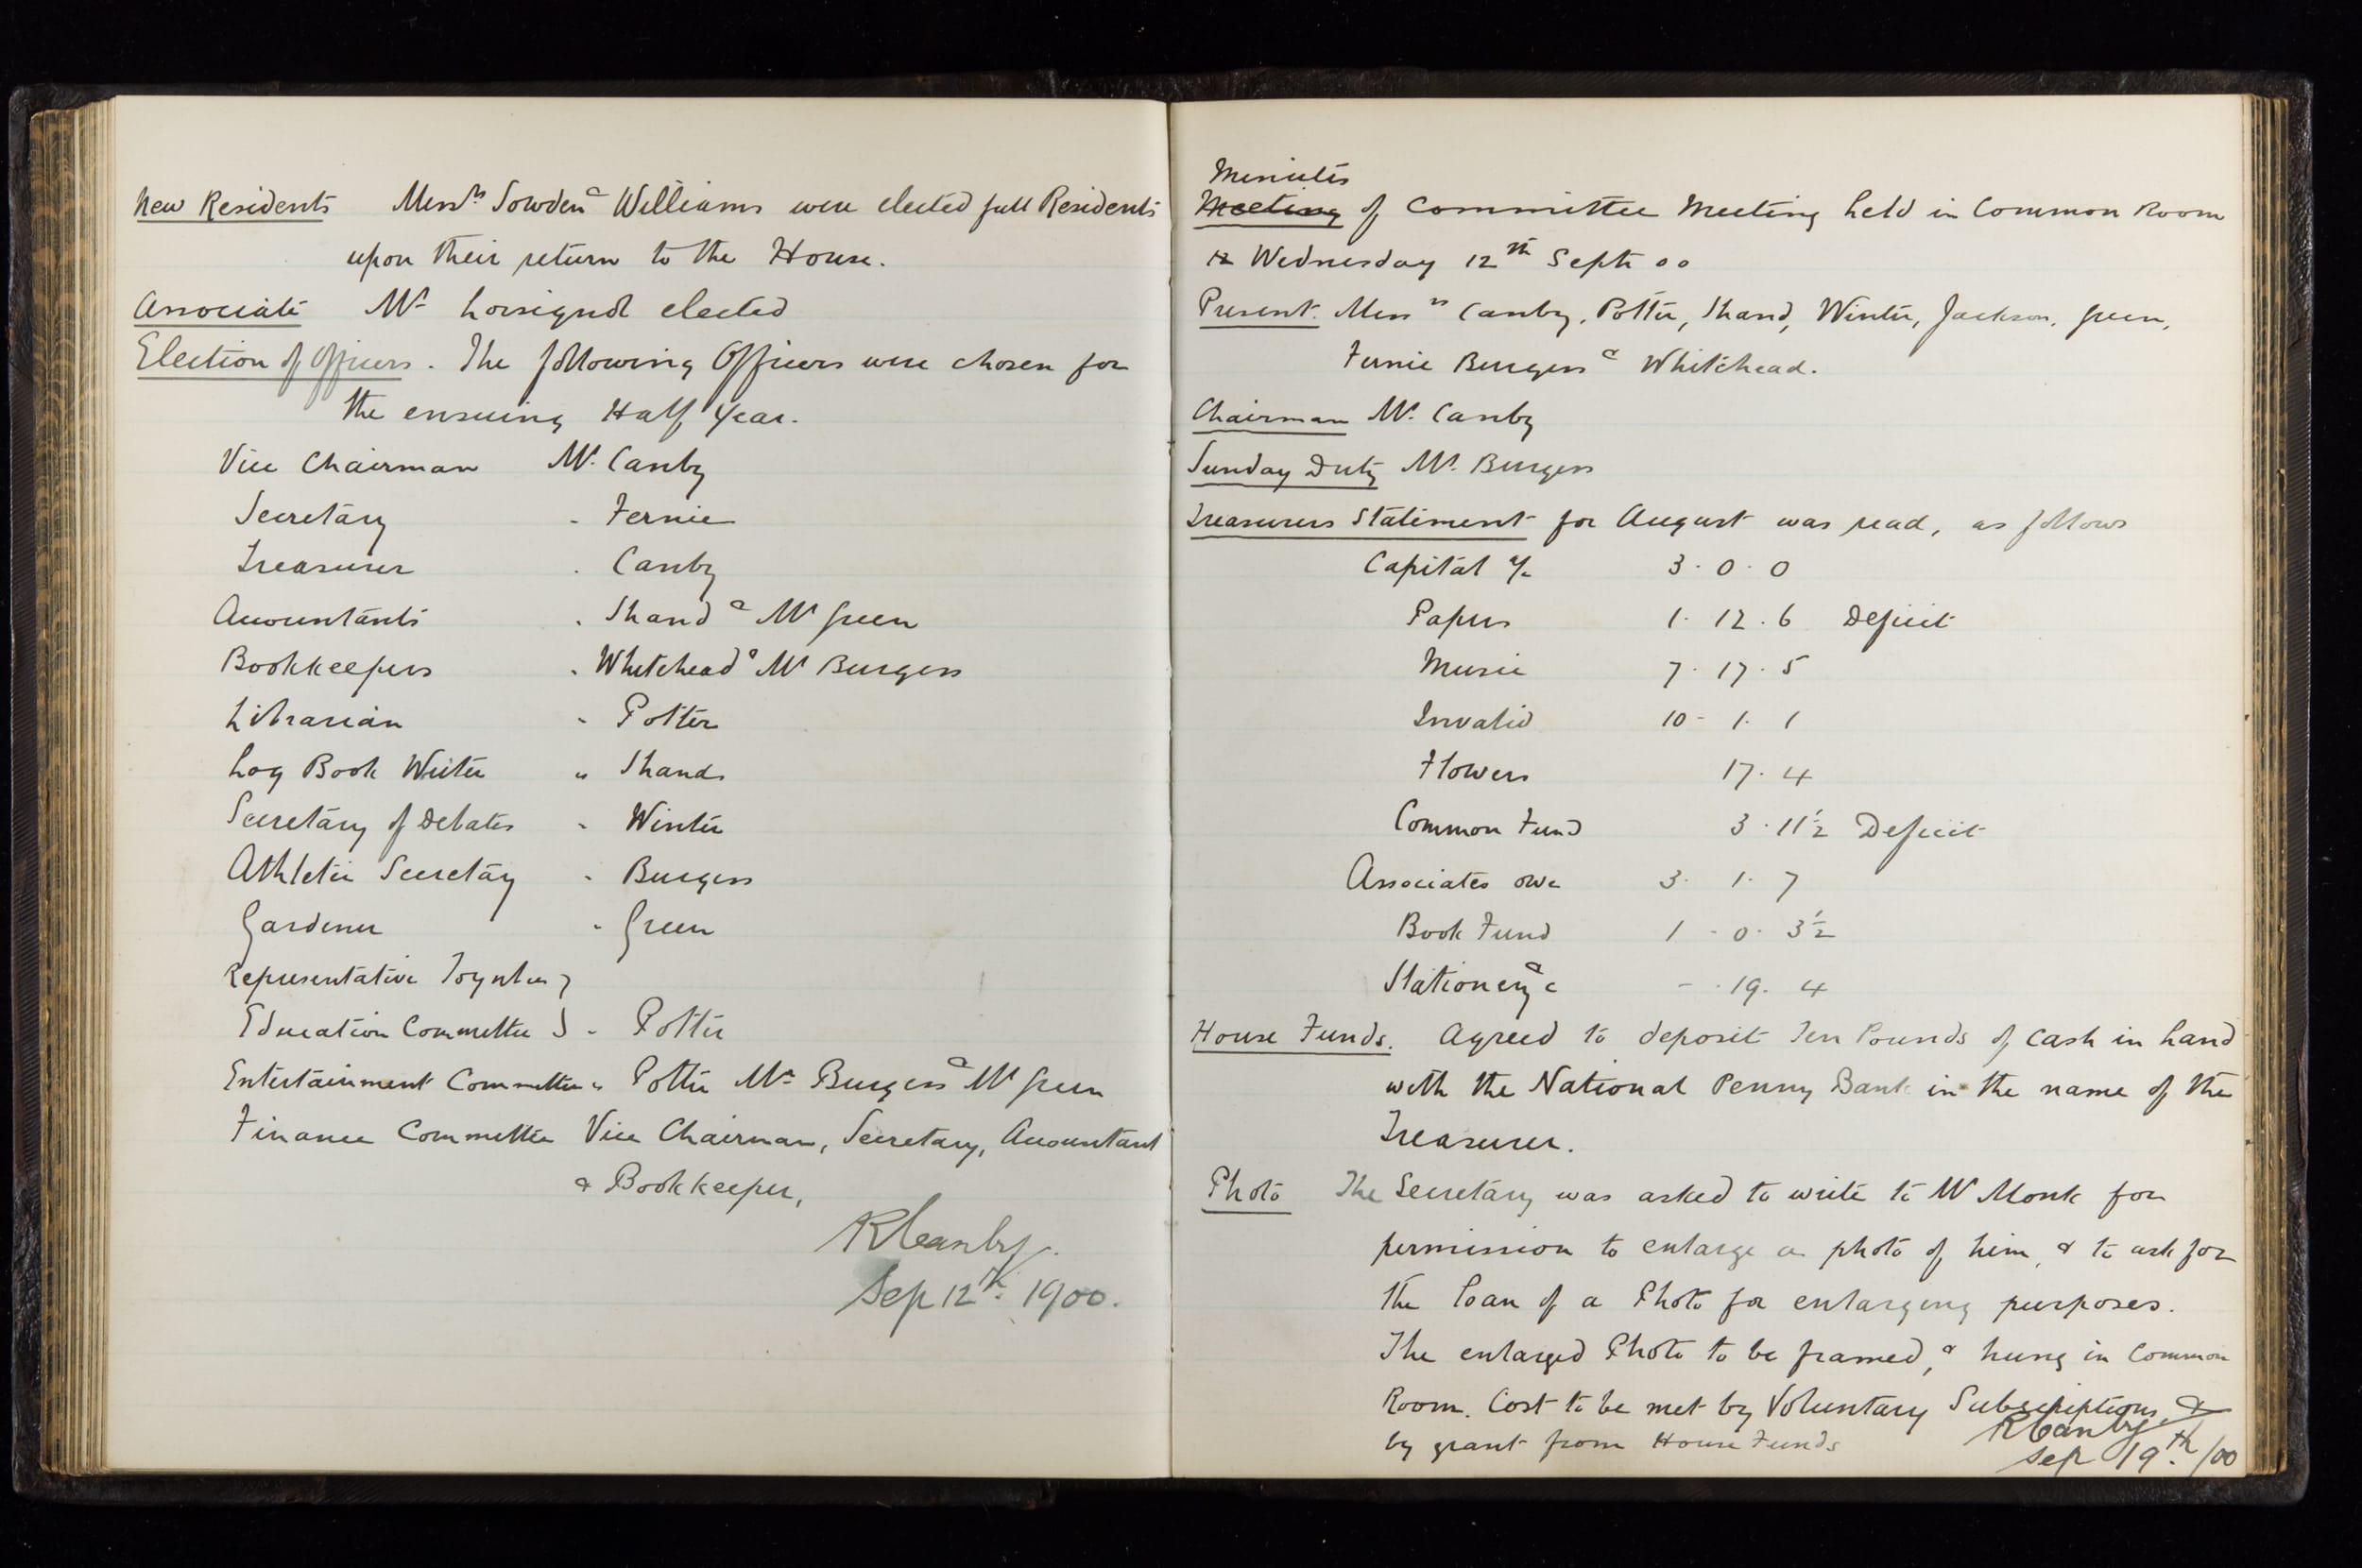 New Residents Messrs Sowden & Williams were elected full Residents
upon their return to the House.
Associate Mr elected
Election of Officers. The following Officers were chosen for
the ensuing Half Year.
Vice Chairman Mr. Canby
Secretary - Fernie
Treasurer . Canby
Accountants . Shand & Mr Green
Bookkeepers . Whitehead & Mr Burgess
Librarian - Potter
Log Book Writer " Shand
Secretary of Debates - Winter
Athletic Secretary - Burgess
Gardener - Green
Representative Toynbee }
Education Committee } - Potter
Entertainment Committee " Potter Mr Burgess & Mr Green
Finance Committee Vice Chairman, Secretary, Accountant
& Bookkeeper,
R Canby.
Sep 12th. 1900.
Minutes
Meeting of Committee Meeting held in Common Room
12 Wednesday 12th Sept 00
Present. Messrs Canby, Potter, Shand, Winter, Jackson, Green,
Fernie Burgess & Whitehead.
Chairman Mr. Canby
Sunday Duty Mr. Burgess
Treasurers Statement for August was read, as follows
Capital a/c 3 . 0 . 0
Papers 1 . 12 . 6 Deficit
Music 7 . 17 . 5
Invalid 10 - 1 . 1
Flowers 17 . 4
Common Fund 3 . 11½ Deficit
Associates owe 3 . 1 . 7
Book Fund 1 - 0 . 3½
Stationery &c - . 19 . 4
House Funds. Agreed to deposit Ten Pounds of cash in hand
with the National Penny Bank in the name of the
Treasurer.
Photo The Secretary was asked to write to Mr Monk for
permission to enlarge a photo of him, & to ask for
the loan of a Photo for enlarging purposes.
The enlarged Photo to be framed, & hung in Common
Room. Cost to be met by Voluntary Subscriptions, &
by grant from House Funds
R Canby
Sep 19th. /00